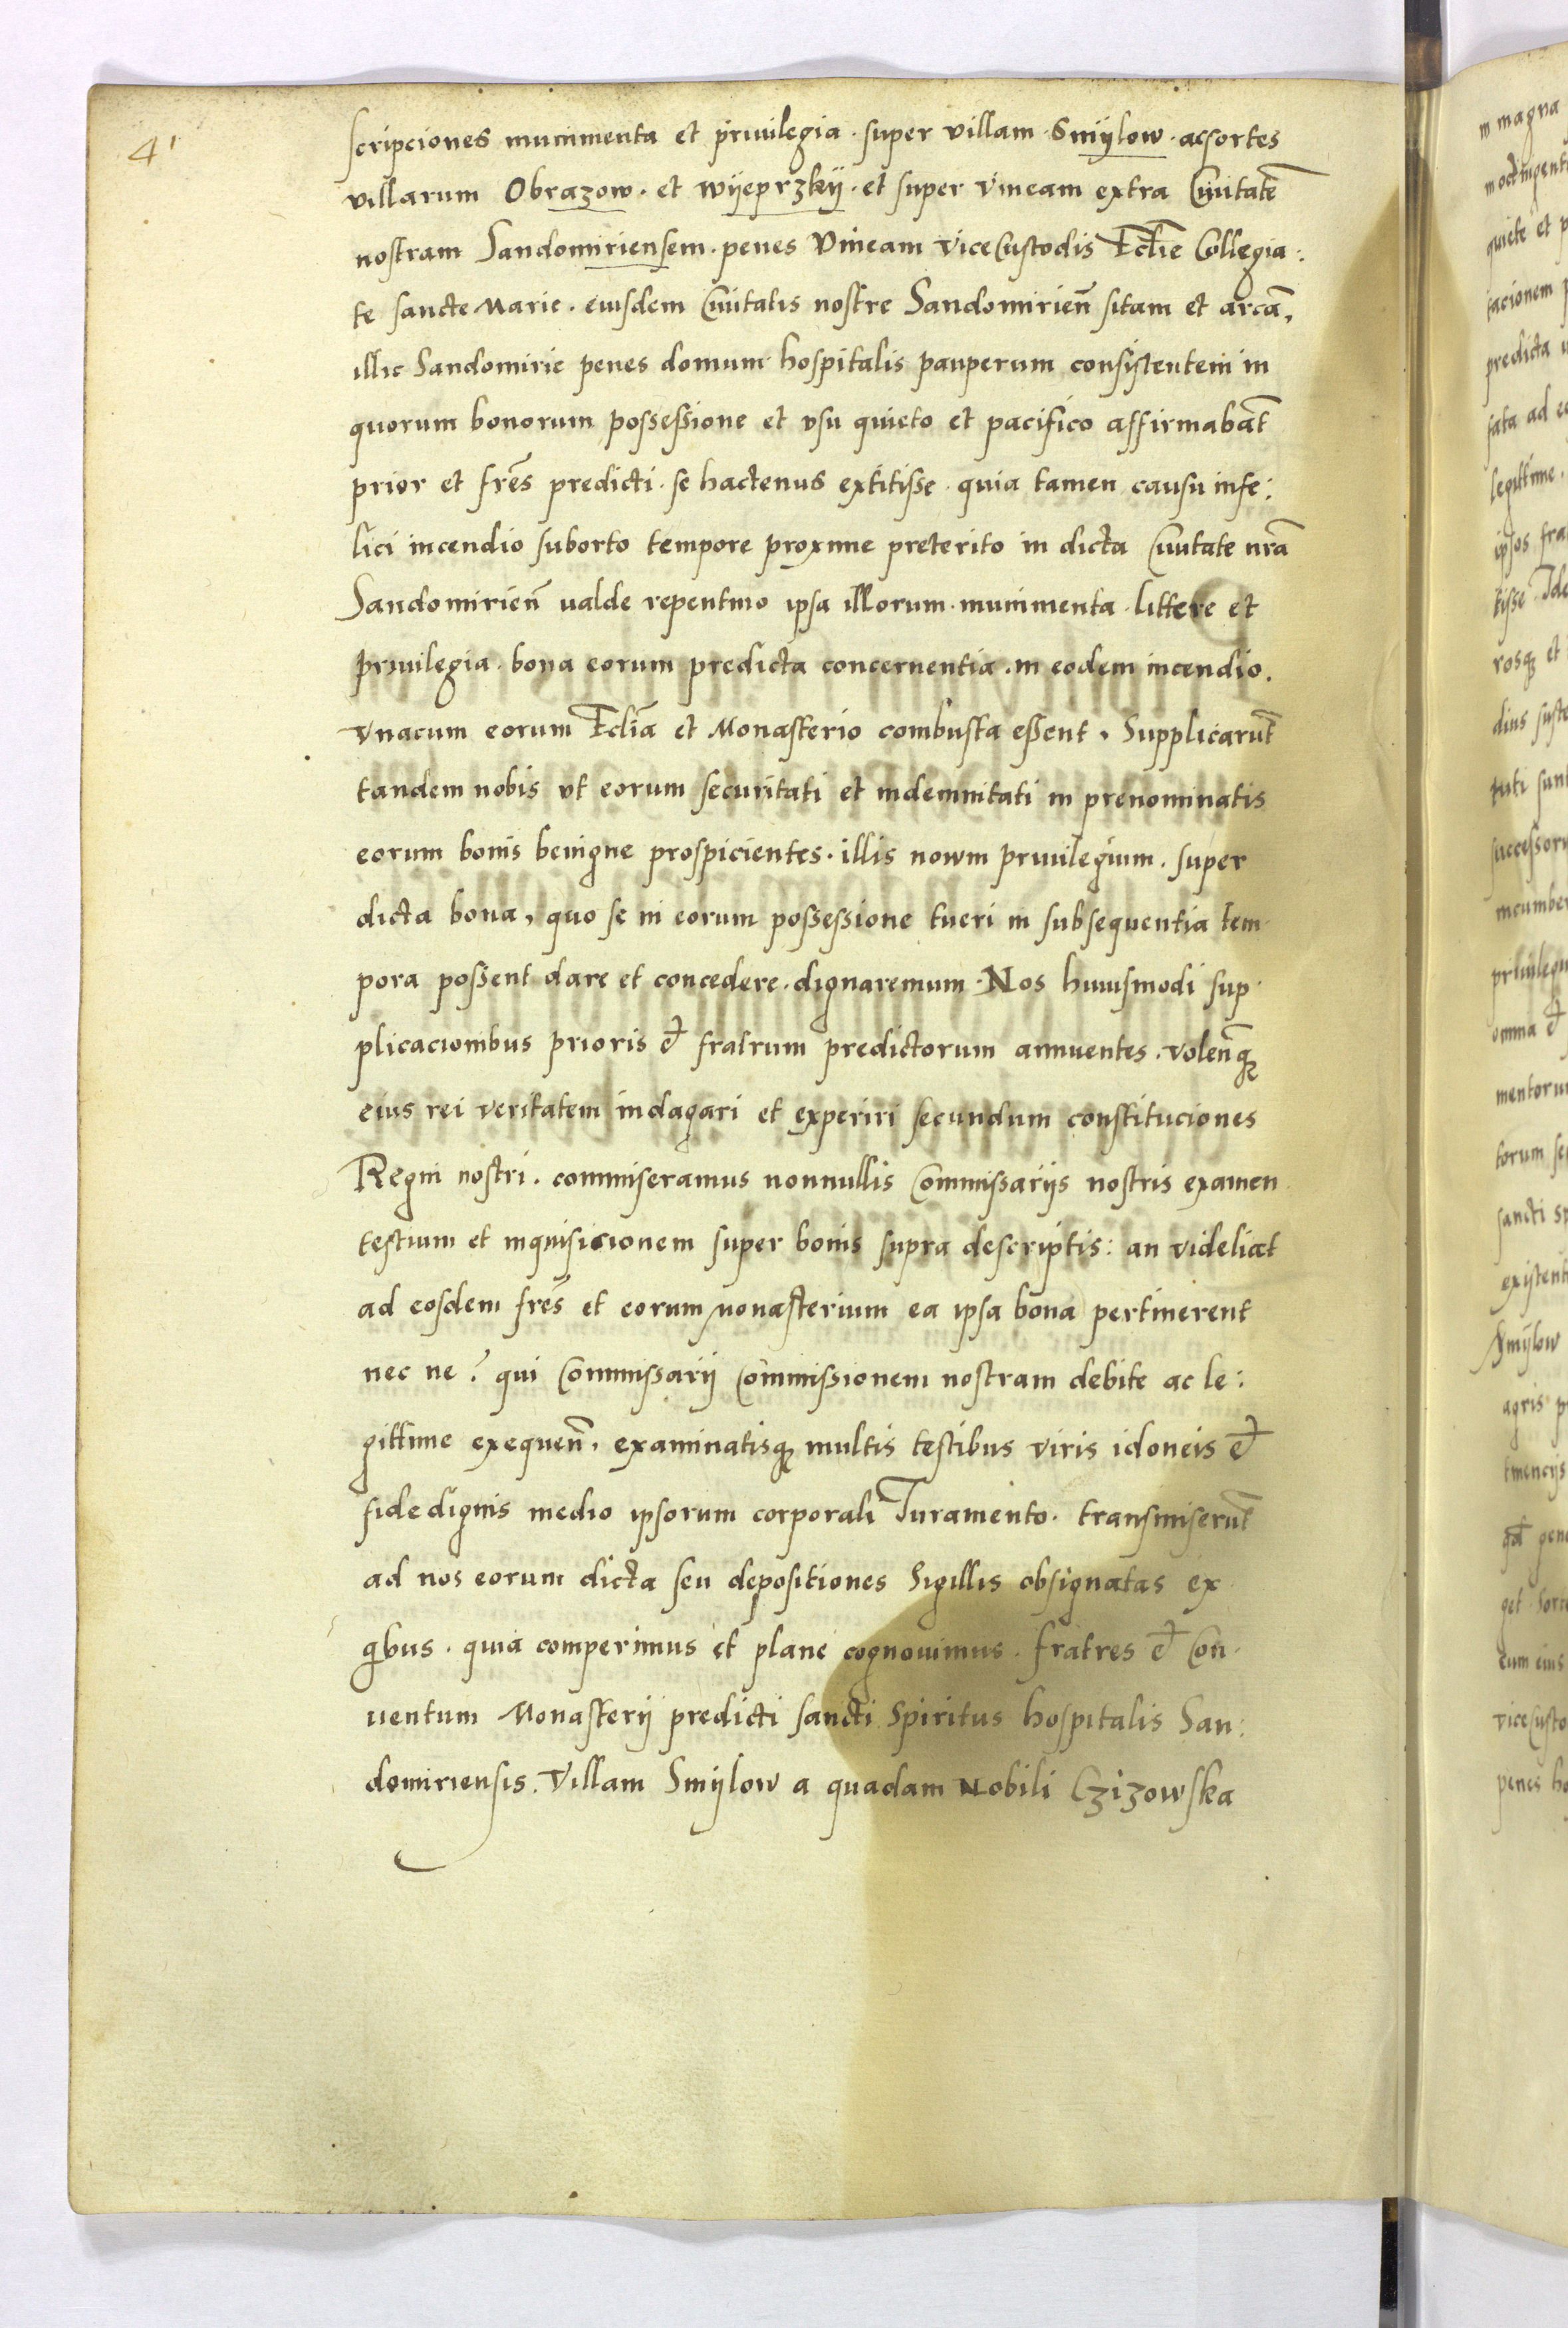 41
scripciones munimenta et priuilegia · super villam · Smÿlow · ac sortes
villarum Obrazow · et Wÿeprzkÿ · et super vineam extra Ciuitatē
nostram Sandomiriensem · penes Vineam viceCustodis Eccl̄ie Collegia :
te sancte Marie · eiusdem Ciuitatis nostre Sandomirien̄ sitam et arcā,
illic Sandomirie penes domum hospitalis pauperum consistentem in
quorum bonorum possessione et vsu quieto et pacifico affirmabāt
prior et fr̄es predicti · se hactenus extitisse · quia tamen causu infe :
lici incendio suborto tempore proxime preterito in dicta Ciuitate nr̄a
Sandomirien̄ ualde repentino ipsa illorum · munimenta · littere et
priuilegia · bona eorum predicta concernentia · in eodem incendio ·
vnacum eorum Eccl̄ia et Monasterio combusta essent · Supplicarūt
tandem nobis vt eorum securitati et indemnitati in prenominatis
eorum bonis benigne prospicientes · illis nowm priuilegium · super
dicta bona, quo se in eorum possessione tueri in subsequentia tem
pora possent dare et concedere · dignaremum · Nos huiusmodi sup
plicacionibus prioris et fratrum predictorum annuentes · volen̄q₃
eius rei veritatem indagari et experiri secundum constituciones
Regni nostri · commiseramus nonnullis Commissarijs nostris examen
testium et inquisicionem super bonis supra descriptis : an videlicet
ad eosdem fr̄es et eorum monasterium ea ipsa bona pertinerent
nec ne ? qui Commissarij Commissionem nostram debite ac le :
gittime exequen̄ · examinatisq₃ multis testibus viris idoneis et
fidedignis medio ipsorum corporali Iuramento · transmiserūt
ad nos eorum dicta seu depositiones Sigillis obsignatas ex
qͥbus · quia comperimus et plane cognouimus · fratres et Con
uentum Monasterij predicti sancti Spiritus hospitalis San :
domiriensis · Villam Smÿlow a quadam Nobili Czizowska
m magna
quiete et p
tacionem p
predicta u
fata ad eo
legittime ·
ipsos fra
tisse Ide
rosq₃ et
dius suste
tuti sunt
successoru
incumben
priuilegi
omnia et
mentorum
torum se
sancti sp
existent
Smÿlow
agris p
tinencijs
get · Sorte
cum eius
viceCusto
penes ho